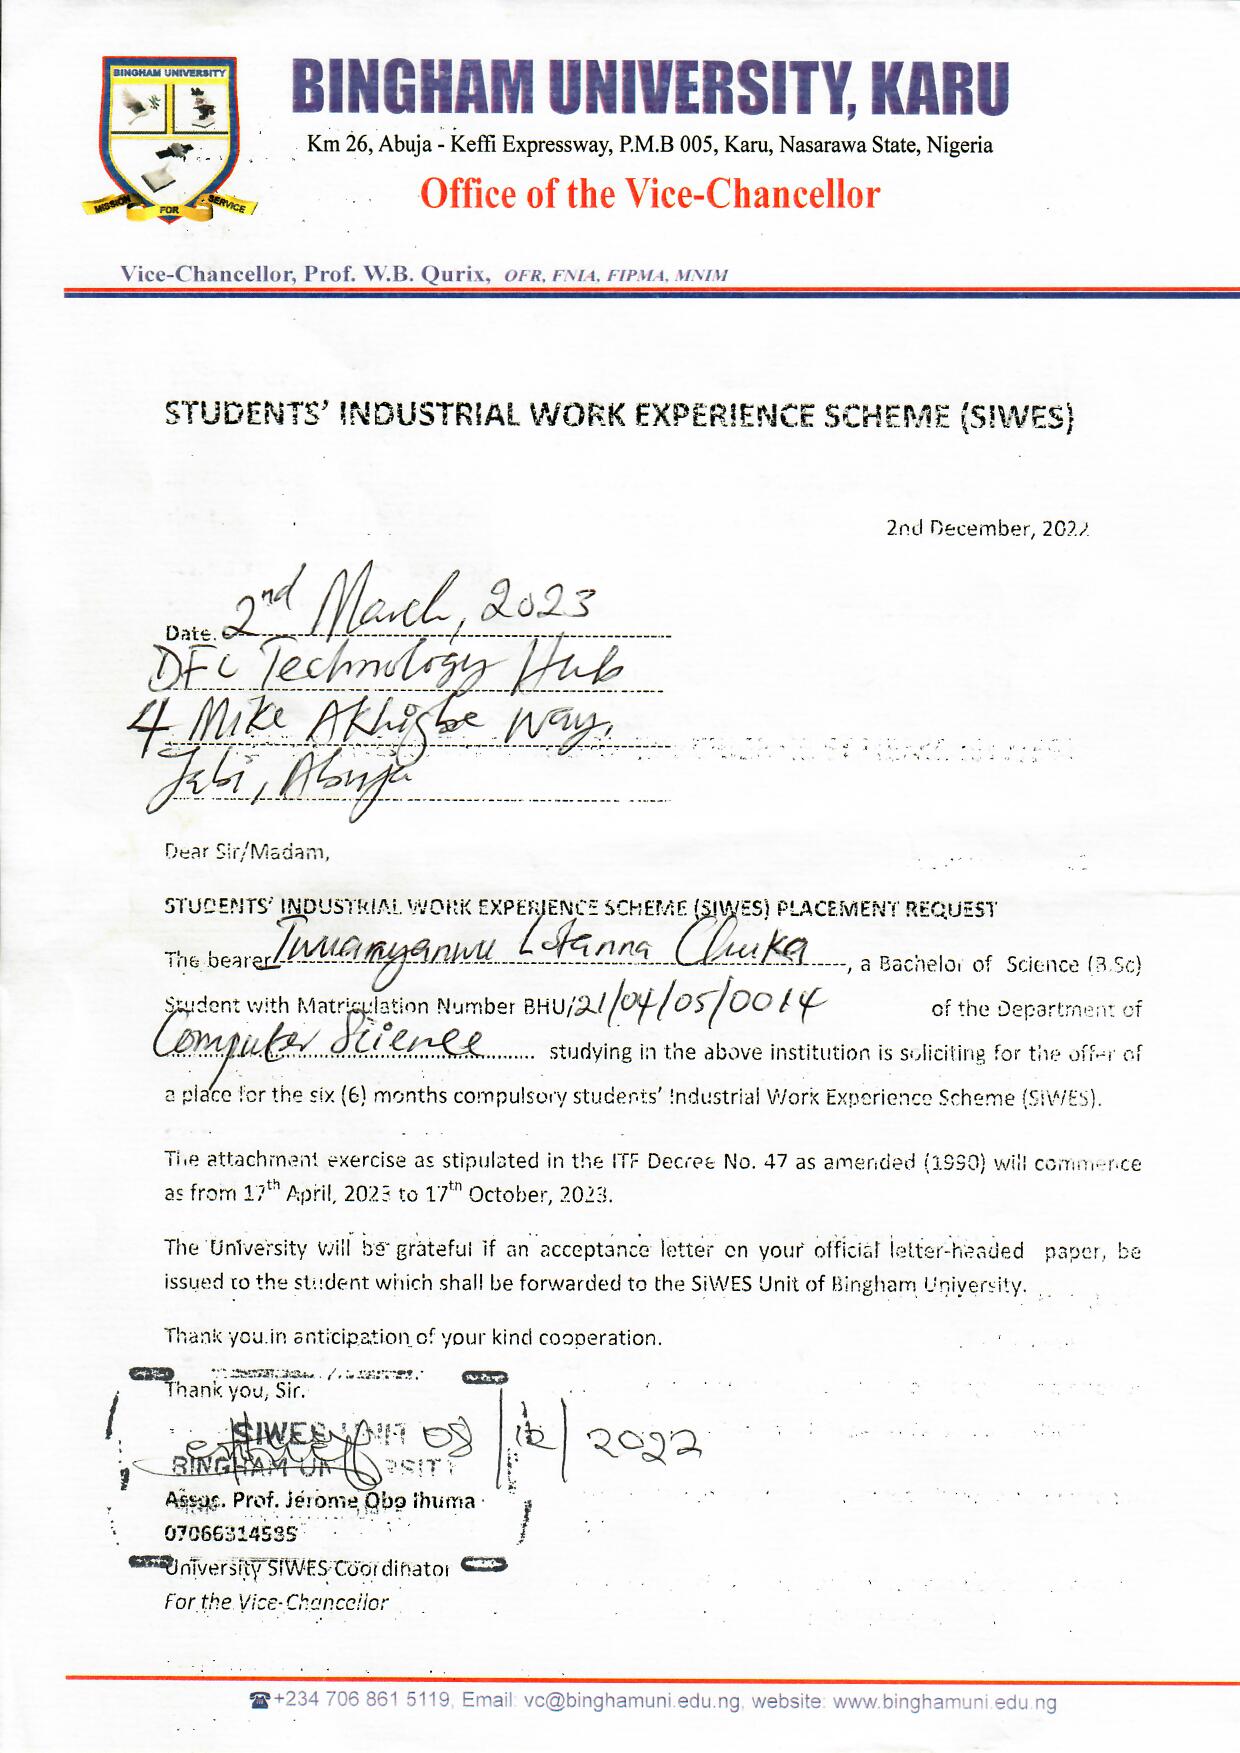 BINGHAM UNIVERSITY
MISSION FOR SERVICE
BINGHAM UNIVERSITY, KARU
Km 26, Abuja - Keffi Expressway, P.M.B 005, Karu, Nasarawa State, Nigeria
Office of the Vice-Chancellor
Vice-Chancellor, Prof. W.B. Qurix, OFR, FNIA, FIPMA, MNIM
STUDENTS' INDUSTRIAL WORK EXPERIENCE SCHEME (SIWES)
2nd December, 2022
Date. 2nd March, 2023
DFC Technology Hub
4 Mike Akhigbe Way,
Jabi, Abuja
Dear Sir/Madam,
STUDENTS' INDUSTRIAL WORK EXPERIENCE SCHEME (SIWES) PLACEMENT REQUEST
The bearer Iwuanyanwu Lotanna Chuka, a Bachelor of Science (B.Sc)
Student with Matriculation Number BHU/21/04/05/0014 of the Department of
Computer Science studying in the above institution is soliciting for the offer of
a place for the six (6) months compulsory students' Industrial Work Experience Scheme (SIWES).
The attachment exercise as stipulated in the ITF Decree No. 47 as amended (1990) will commence
as from 17th April, 2023 to 17th October, 2023.
The University will be grateful if an acceptance letter on your official letter-headed paper, be
issued to the student which shall be forwarded to the SIWES Unit of Bingham University.
Thank you in anticipation of your kind cooperation.
Thank you, Sir.
SIWES UNIT 08/12/2022
BINGHAM UNIVERSITY
Assoc. Prof. Jerome Obo Ihuma
07066314535
University SIWES Coordinator
For the Vice-Chancellor
☎+234 706 861 5119, Email: vc@binghamuni.edu.ng, website: www.binghamuni.edu.ng